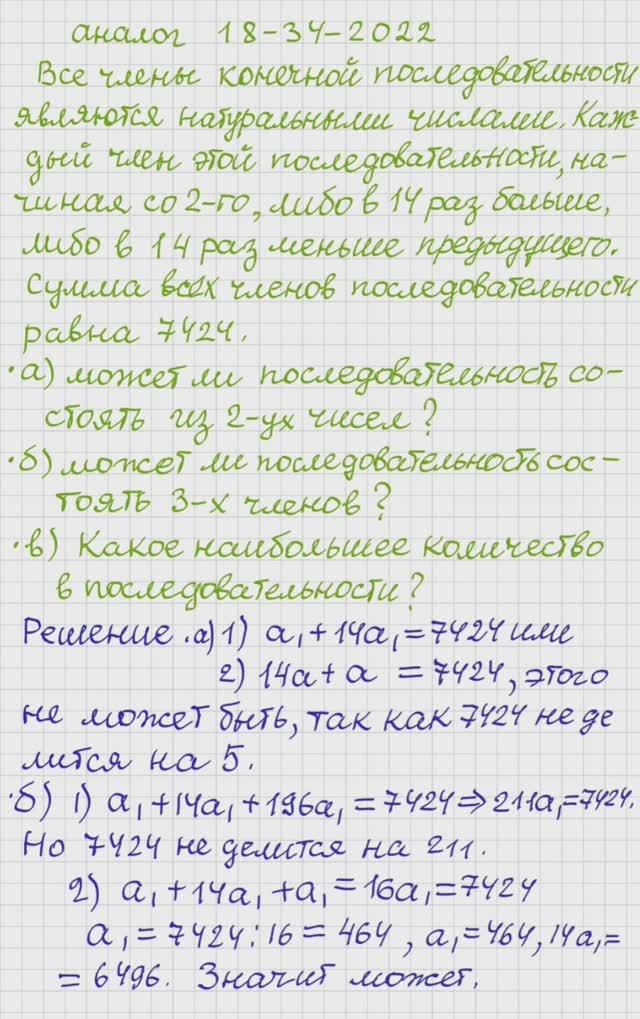 аналог 18-34-2022
Все члены конечной последовательности
являются натуральными числами. Каж-
дый член этой последовательности, на-
чиная со 2-го, либо в 14 раз больше,
либо в 14 раз меньше предыдущего.
Сумма всех членов последовательности
равна 7424.
·а) может ли последовательность со-
стоять из 2-ух чисел?
·б) может ли последовательность сос-
тоять 3-х членов?
·в) Какое наибольшее количество
в последовательности?
Решение.а) 1) a₁+14a₁=7424 или
2) 14a+a = 7424, этого
не может быть, так как 7424 не де
лится на 5.
·б) 1) a₁+14a₁+196a₁=7424⇒211a₁=7424.
Но 7424 не делится на 211.
2) a₁+14a₁+a₁=16a₁=7424
a₁=7424:16=464, a₁=464, 14a₁=
=6496. Значит может.